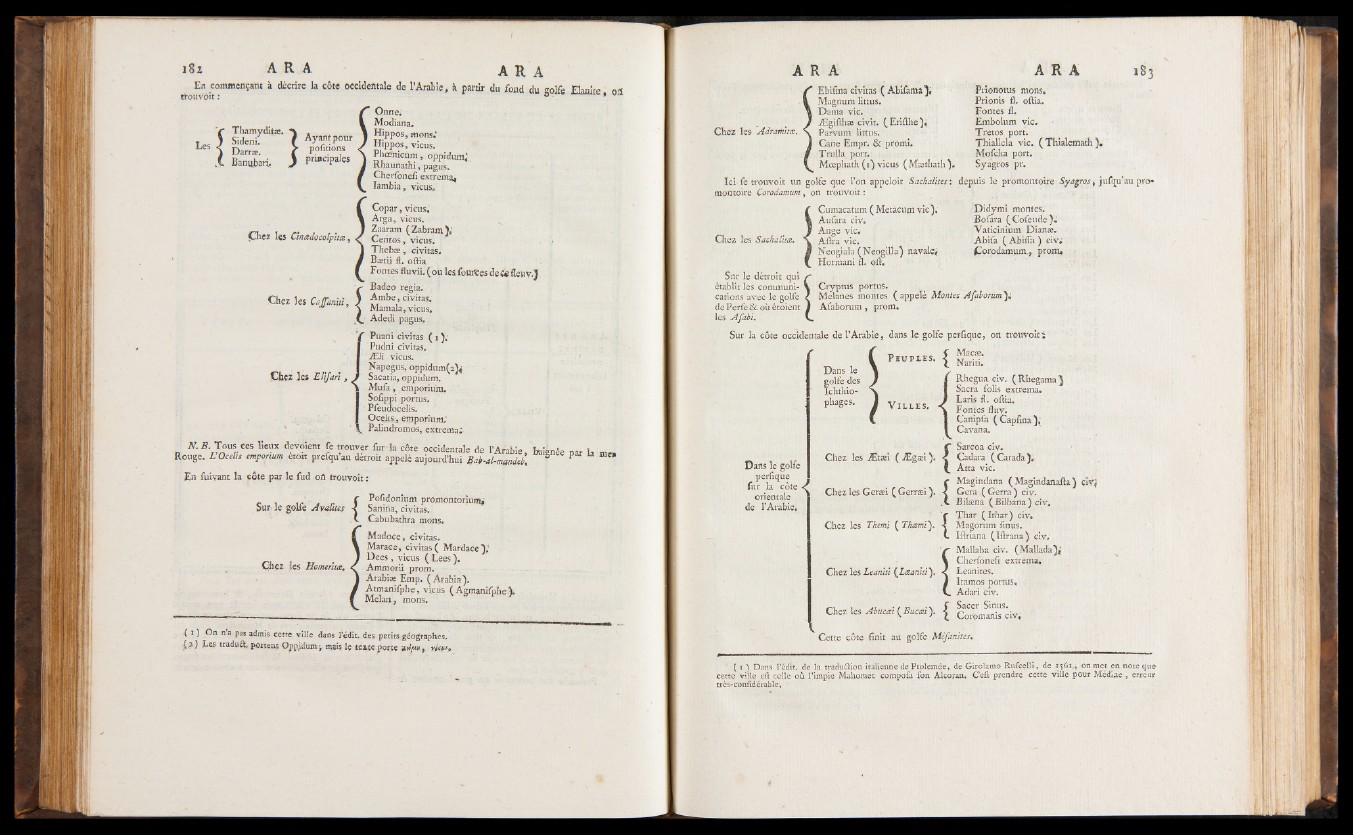 182 A R A A R A
En commençant à décrire la côte occidentale de l'Arabie, à partir du fond du golfe Elanite, on
trouvoit :
Les
Thamyditæ.
Sideni.
Darræ.
Banubari.
Ayant pour
positions
principales
Onne.
Modiana.
Hippos, mons.
Hippos, vicus.
Phœnicum, oppidum.
Rhaunathi, pagus.
Chersonesi extrema.
Iambia, vicus.
Chez les Cinædocolpitæ,
Copar, vicus.
Arga, vicus.
Zaaram (Zabram).
Centos, vicus.
Thebæ, civitas.
Bætii fl. ostia
Fontes fluvii. (où les sources de ce fleuv.)
Chez les Cassaniti,
Badeo regia.
Ambe, civitas.
Mamala, vicus.
Adedi pagus.
Chez les Elisari,
Puani civitas (1).
Pudni civitas.
Æli vicus.
Napegus, oppidum(2).
Sacatia, oppidum.
Musa, emporium.
Sosippi portus.
Pseudocelis.
Ocelis, emporium.
Palindromos, extrema.
N. B. Tous ces lieux devoient se trouver sur la côte occidentale de l'Arabie, baignée par la mer
Rouge. L'Ocelis emporium étoit presqu'au détroit appelé aujourd'hui Bab-al-mandeb.
En suivant la côte par le sud on trouvoit :
Sur le golfe Avalites
Posidonium promontorium.
Sanina, civitas.
Cabubathra mons.
Chez les Homeritæ.
Madoce, civitas.
Marace, civitas (Mardace).
Dees, vicus (Lees).
Ammorii prom.
Arabiæ Emp. (Arabia).
Atmanisphe, vicus (Agmanisphe).
Melan, mons.
(1) On n'a pas admis cette ville dans l'édit. des petits géographes.
(2) Les traduct. portent Oppidum; mais le texte porte κώμη, vicus.
A R A A R A 183
Chez les Adramitæ.
Ebisina civitas (Abisama).
Magnum littus.
Dama vic.
Ægisthæ civit. (Eristhe).
Parvum littus.
Cane Empr. & promi.
Trulla port.
Mœphath (1) vicus (Mæthath).
Prionotus mons.
Prionis fl. ostia.
Fontes fl.
Embolum vic.
Tretos port.
Thiallela vic. (Thialemath).
Moscha port.
Syagros pr.
Ici se trouvoit un golfe que l'on appeloit Sachalites : depuis le promontoire Syagros, jusqu'au pro-
montoire Corodamum, on trouvoit :
Chez les Sachalitæ.
Cumacatum (Metacum vic).
Ausara civ.
Ange vic.
Astra vic.
Neogiala (Neogilla) navale.
Hormani fl. ost.
Didymi montes.
Bosara (Coseude).
Vaticinium Dianæ.
Abisa (Abissa) civ.
Corodamum, prom.
Sur le détroit qui
établit les communi-
cations avec le golfe
de Perse & où étoient
les Asabi.
Cryptus portus.
Melanes montes (appelé Montes Asaborum).
Asaborum, prom.
Sur la côte occidentale de l'Arabie, dans le golfe persique, on trouvoit :
Dans le golfe
persique
sur la côte
orientale
de l'Arabie.
Dans le
golfe des
Ichthio-
phages.
PEUPLES.
Macæ.
Nariti.
VILLES.
Rhegua civ. (Rhegama)
Sacra solis extrema.
Laris fl. ostia.
Fontes fluv.
Canipsa (Capsina).
Cavana.
Chez les Ætæi (Ægæi).
Sarcoa civ.
Cadara (Carada).
Atta vic.
Chez les Geræi (Gerræi).
Magindana (Magindanasta) civ.
Gera (Gerra) civ.
Bilæna (Bilbana) civ.
Chez les Themi (Thæmi).
Thar (Ithar) civ.
Magorum sinus.
Istriana (Istrana) civ.
Chez les Leaniti (Læaniti).
Mallaba civ. (Mallada).
Chersonesi extrema.
Leanites.
Itamos portus.
Adari civ.
Chez les Abucæi (Bucæi).
Sacer Sinus.
Coromanis civ.
Cette côte finit au golfe Mésanites.
(1) Dans l'édit. de la traduction italienne de Ptolemée, de Girolamo Ruscelli, de 1561, on met en note que
cette ville est celle où l'impie Mahomet composa son Alcoran. C'est prendre cette ville pour Médine, erreur
très-considérable.